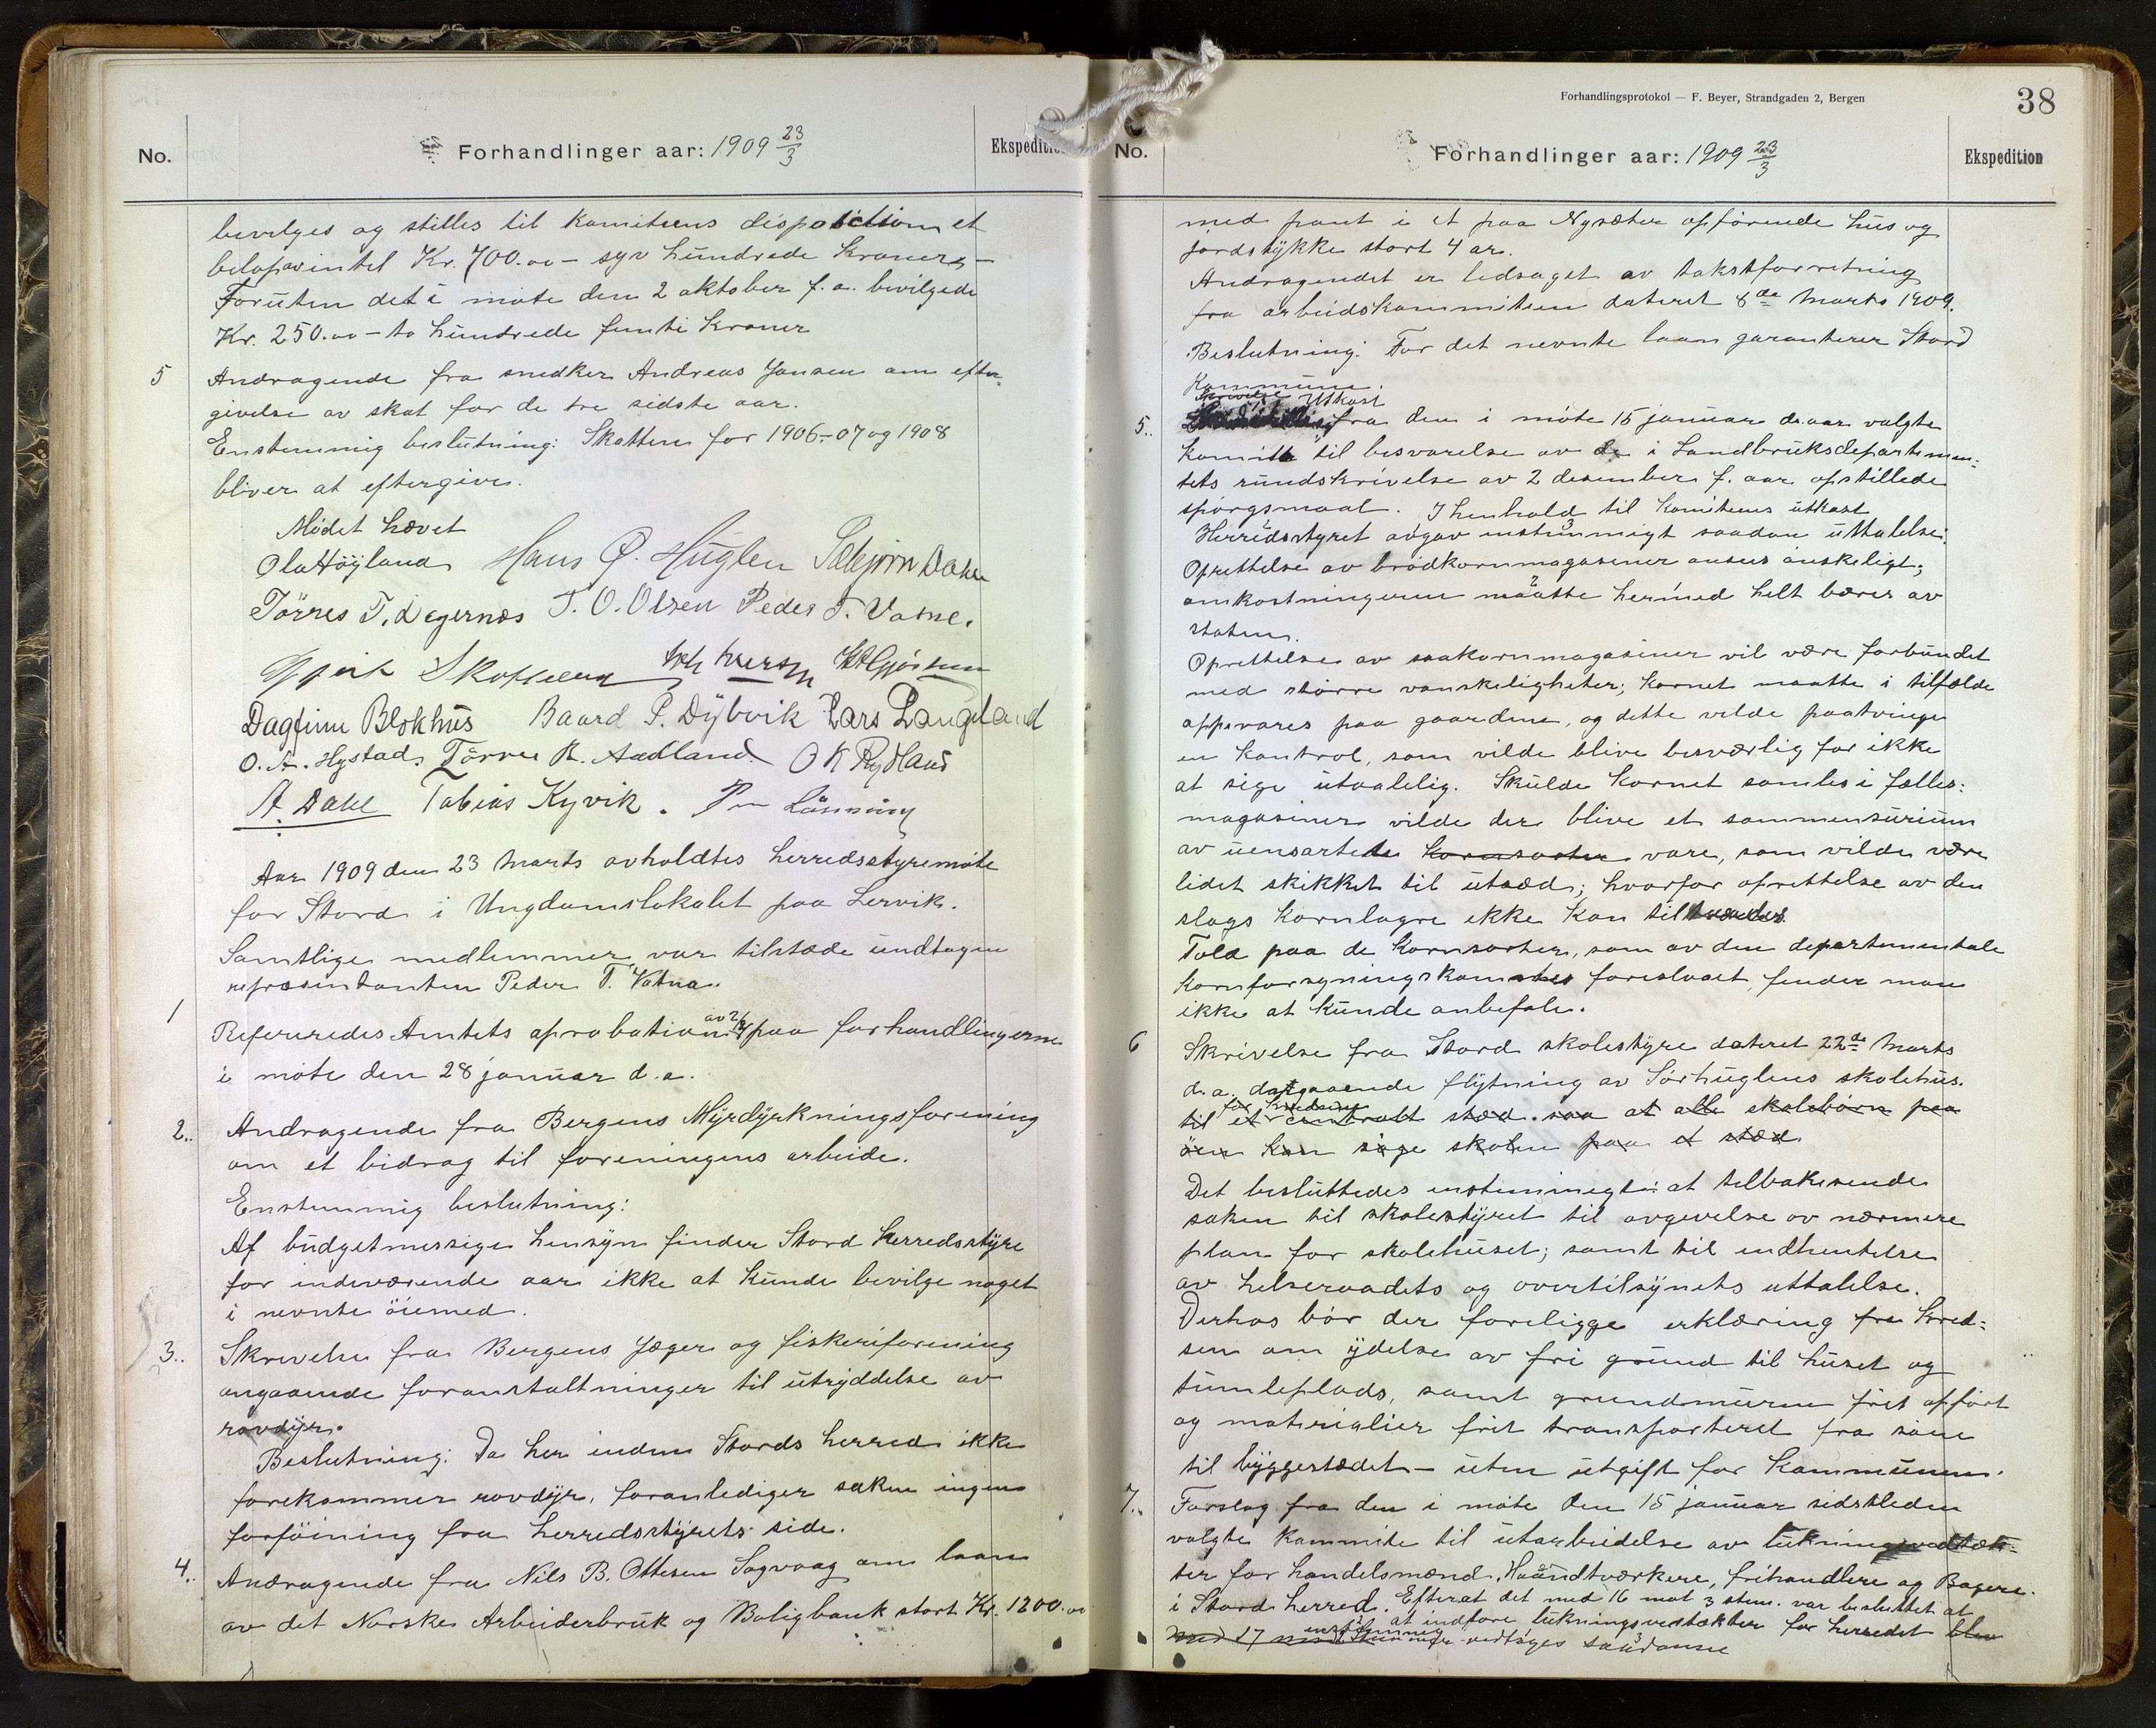 No. Forhandlinger aar: 1909 23/3 Ekspedition
bevilges og stilles til komiteens disposition et
beløp intil Kr. 700.00 – syv hundrede kroner –
Foruten det i møte den 2 oktober f. a. bevilgede
Kr. 250.00 – to hundrede femti kroner
5 Andragende fra snedker Andreas Jansen om efter-
givelse av skat for de tre sidste aar.
Enstemmig beslutning: Skatten for 1906-07 og 1908
bliver at eftergive.
Mødet hævet
Ola Höyland Hans Q. Huglen Sæbjørn Dahle
Törres T. Degernæs T. O. Olsen Peder T. Vatne.
Skottene
Dagfinn Blokhus Baard P. Dybvik Lars Langeland
O. A. Hystad. Törres R. Aadland. O K Rydland
A. Dahl Tobias Kyvik. Per Lönning
Aar 1909 den 23 Marts avholdtes herredsstyremøte
for Stord i Ungdomslokalet paa Lervik.
Samtlige medlemmer var tilstæde undtagen
repræsentanten Peder T. Vatna.
1 Refereredes Amtets aprobation av 2/2 paa forhandlingerne
i møte den 28 januar d. a.
2.. Andragende fra Bergens Myrdyrkningsforening
om et bidrag til foreningens arbeide.
Enstemmig beslutning:
Af budgetmessige hensyn finder Stord Herredsstyre
for indeværende aar ikke at kunde bevilge noget
i nevnte öiemed.
3.. Skrivelse fra Bergens Jæger og fiskeriforening
angaaende foranstaltninger til utryddelse av
rovdyr.
Beslutning: Da her inden Stords herred ikke
forekommer rovdyr, foranlediger saken ingen
forföining fra herredsstyrets side.
4.. Andragende fra Nils B. Ottesen Sagvaag om laan
av det Norske Arbeiderbruk og Boligbank stort Kr. 1200.00
Forhandlingsprotokol — F. Beyer, Strandgaden 2, Bergen
38
No. Forhandlinger aar: 1909 23/3 Ekspedition
med pant i et paa Nysæter opförende hus og
jordstykke stort 4 ar.
Andragendet er ledsaget av takstforretning
fra arbeidskommiteen dateret 8de Marts 1909.
Beslutning: For det nevnte laan garanterer Stord
Kommune.
Skrivelse Utkast
5.. fra den i möte 15 januar d. aar valgte
komite til besvarelse av de i Landbruksdepartemen-
tets rundskrivelse av 2 desember f. aar opstillede
spörgsmaal. I henhold til komiteens utkast
Herredsstyret avgav enstemmigt saadan uttalelse:
Oprettelse av brödkornmagasiner ansees önskeligt;
omkostningerne maatte hermed helt bæres av
staten.
Oprettelse av saakornmagasiner vil være forbundet
med större vanskeligheter; kornet maatte i tilfælde
oppevares paa gaardene, og dette vilde paatvinge
en kontrol, som vilde blive besværlig for ikke
at sige utaalelig. Skulde kornet samles i fælles-
magasiner vilde der blive et sammensurium
av uensartede kornsorter vare, som vilde være
lidet skikket til utsæd; hvorfor oprettelse av den
slags kornlagre ikke kan tilraades.
Told paa de kornsorter, som av den departementale
kornforsyningskomite foreslaaet, finder man
ikke at kunde anbefale.
6 Skrivelse fra Stord skolestyre dateret 22de Marts
d. a. angaaende flytning av Sörhuglens skolehus.
for kredsene
til et centralt stæd. saa at alle skolebörn paa
öen kan söge skolen paa et stæd.
Det besluttedes enstemmigt: at tilbakesende
saken til skolestyret til avgivelse av nærmere
plan for skolehuset; samt til indhentelse
av helseraadets og overtilsynets uttalelse.
Derhos bör der foreligge erklæring fra kred-
sen om ydelse av fri grund til huset og
tumleplads, samt grundmuren frit opfört
og materialier frit transporteret fra söen
til byggestædet – uten utgift for kommunen.
7.. Forslag fra den i möte den 15 januar sidstleden
valgte kommite til utarbeidelse av lukningsvedtæk-
ter for handelsmænd, Haandtværkere, frihandlere og Bagere.
i Stord herred. Efterat det med 16 mot 3 stem. var besluttet at
at indföre lukningsvedtækter for herredet blev
med 17 mot enstemmig vedtages saadanne